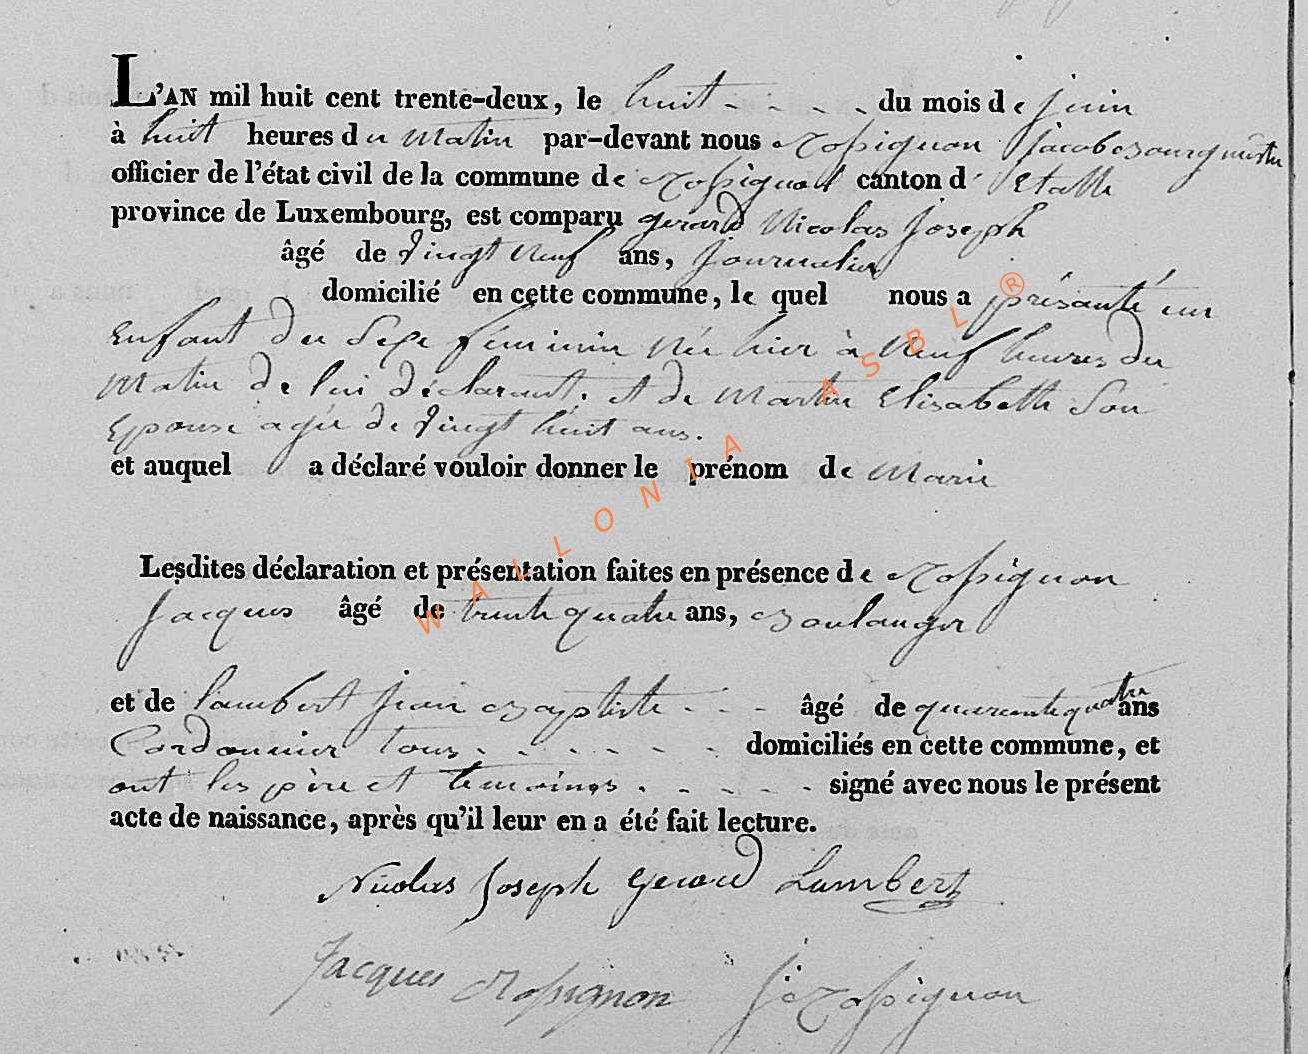 L'AN mil huit cent trente-deux, le huit - - - - du mois de juin
à huit heures du matin par-devant nous Rossignon Jacob Bourgmestre
officier de l'état civil de la commune de Rossignol canton d'Etalle
province de Luxembourg, est comparu gerard Nicolas Joseph
âgé de vingt neuf ans, journalier
domicilié en cette commune, le quel nous a présanté un
Enfant du Sexe féminin Née hier à Neuf heures du
Matin de lui déclarant. et de Martin Elisabeth Son
Epouse agée de vingt huit ans.
et auquel a déclaré vouloir donner le prénom de Marie
Lesdites déclaration et présentation faites en présence de Rossignon
Jacques âgé de trente quatre ans, Boulanger
et de Lambert Jean Baptiste - - - âgé de quarente quatre ans
Cordonnier tous - - - - - - domiciliés en cette commune, et
ont les père et temoings - - - - - signé avec nous le présent
acte de naissance, après qu'il leur en a été fait lecture.
Nicolas Joseph Gerard Lambert
Jacques Rossignon J: Rossignon
WALLONIA ASBL ®